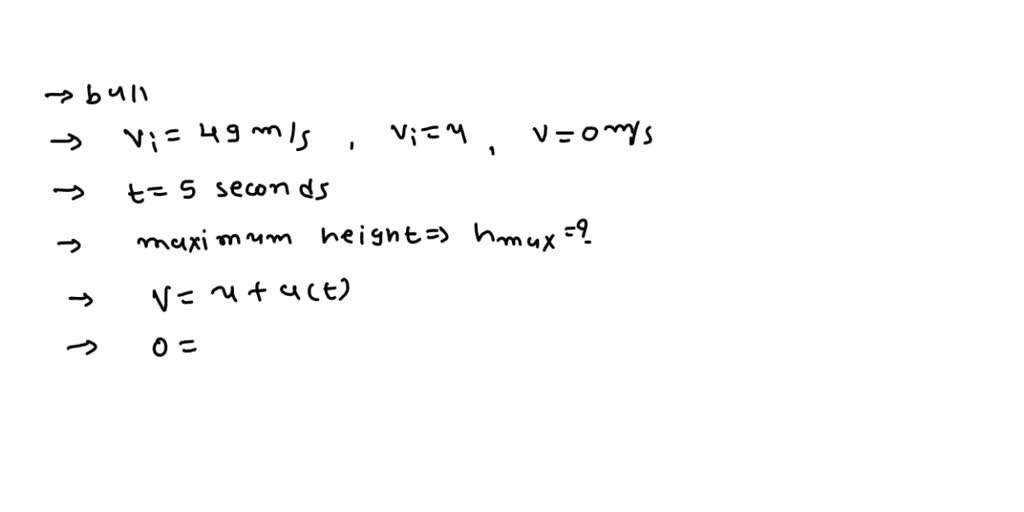 → ball
→ vi = 49 m/s , vi = u , v = 0 m/s
→ t = 5 seconds
→ maximum height ⇒ hmax = ?
→ v = u + a(t)
→ 0 =